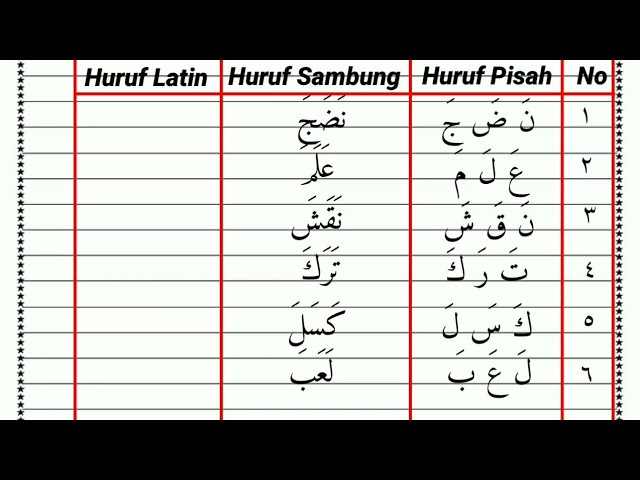 Huruf Latin Huruf Sambung Huruf Pisah No
١ نَ ضَ جَ نَضَجَ
٢ عَ لَ مَ عَلَمَ
٣ نَ قَ شَ نَقَشَ
٤ تَ رَ كَ تَرَكَ
٥ كَ سَ لَ كَسَلَ
٦ لَ عَ بَ لَعَبَ